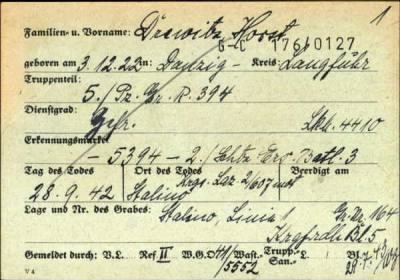 1
Familien- u. Vorname: Drewitz, Horst
G-C 176/0127
geboren am 3.12.22 in: Danzig - Kreis: Langfuhr
Truppenteil:
5./Pz. Gr. R. 394
Dienstgrad:
Gefr. 4410
Erkennungsmarke
- 5394 - 2./Schtz. Ers. Batl. 3
Tag des Todes Ort des Todes Beerdigt am
Krgs. Laz 2/607 mot
28.9.42 Stalino
Lage und Nr. des Grabes: Stalino, Linie 1
Gr. Nr. 164
Krgfrdh. Bl. 5
Gemeldet durch: V.L. Ref II W.G.O. Wast.- Trupp.- Sa.-
41/5552
V 4